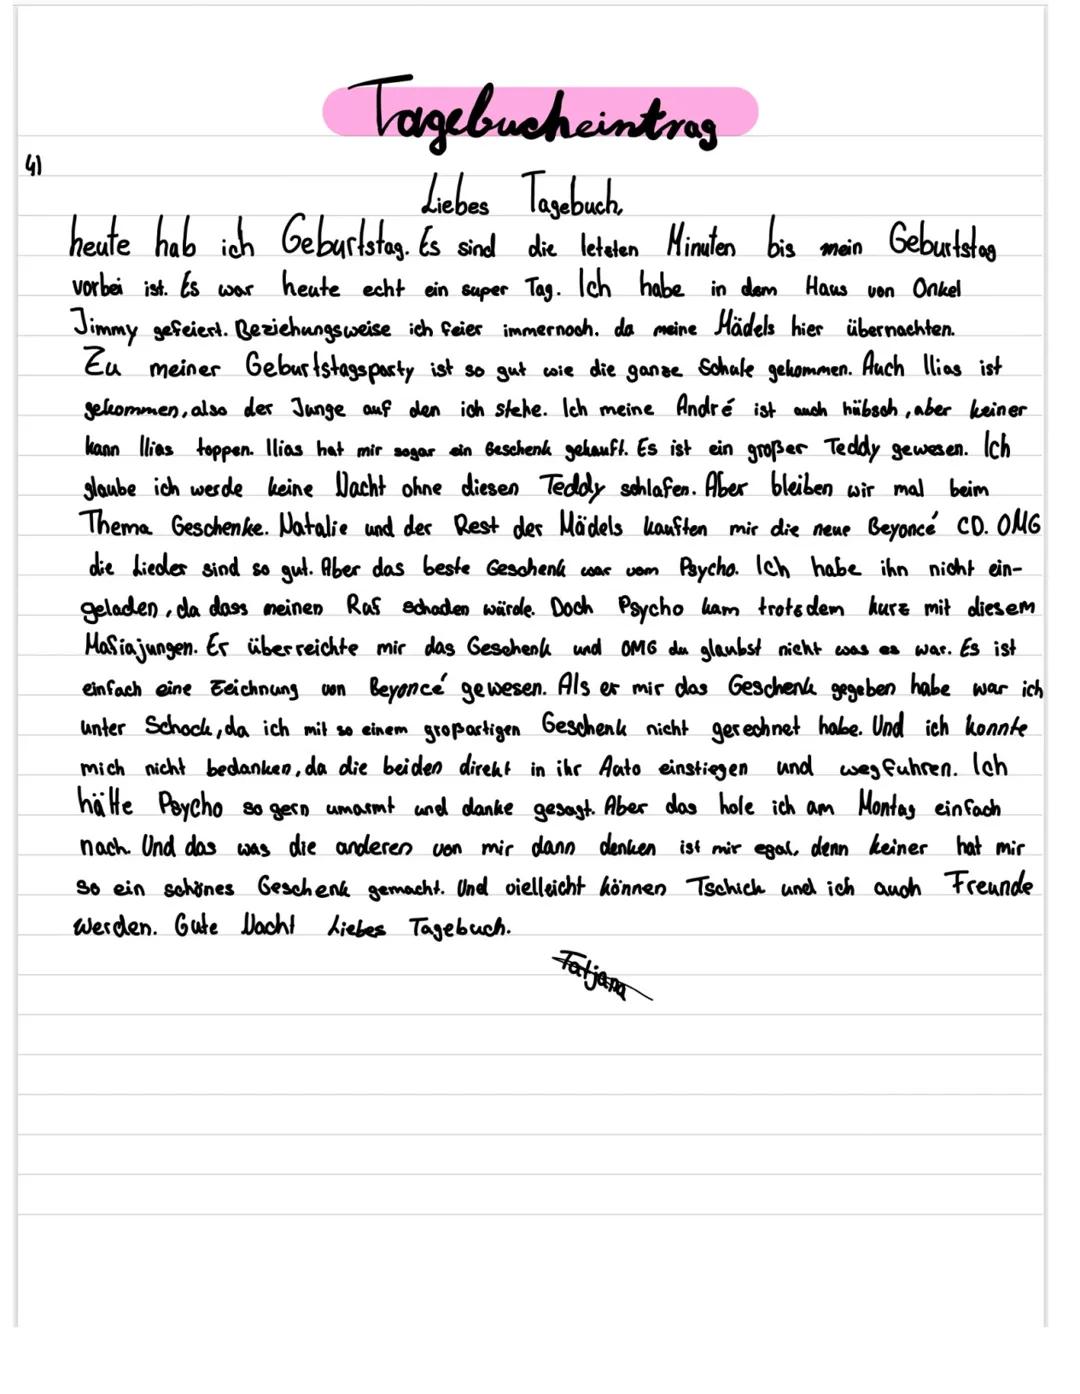 Tagebucheintrag
4)
Liebes Tagebuch,
heute hab ich Geburtstag. Es sind die letzten Minuten bis mein Geburtstag
vorbei ist. Es war heute echt ein super Tag. Ich habe in dem Haus von Onkel
Jimmy gefeiert. Beziehungsweise ich feier immernoch. da meine Mädels hier übernachten.
Zu meiner Geburtstagsparty ist so gut wie die ganze Schule gekommen. Auch Ilias ist
gekommen, also der Junge auf den ich stehe. Ich meine André ist auch hübsch, aber keiner
kann Ilias toppen. Ilias hat mir sogar ein Geschenk gekauft. Es ist ein großer Teddy gewesen. Ich
glaube ich werde keine Nacht ohne diesen Teddy schlafen. Aber bleiben wir mal beim
Thema Geschenke. Natalie und der Rest der Mädels kauften mir die neue Beyoncé CD. OMG
die Lieder sind so gut. Aber das beste Geschenk war vom Psycho. Ich habe ihn nicht ein-
geladen, da dass meinen Ruf schaden würde. Doch Psycho kam trotzdem kurz mit diesem
Mafiajungen. Er überreichte mir das Geschenk und OMG du glaubst nicht was es war. Es ist
einfach eine Zeichnung von Beyoncé gewesen. Als er mir das Geschenk gegeben habe war ich
unter Schock, da ich mit so einem großartigen Geschenk nicht gerechnet habe. Und ich konnte
mich nicht bedanken, da die beiden direkt in ihr Auto einstiegen und wegfuhren. Ich
hätte Psycho so gern umarmt und danke gesagt. Aber das hole ich am Montag einfach
nach. Und das was die anderen von mir dann denken ist mir egal, denn keiner hat mir
so ein schönes Geschenk gemacht. Und vielleicht können Tschick und ich auch Freunde
werden. Gute Nacht Liebes Tagebuch.
Tatjana